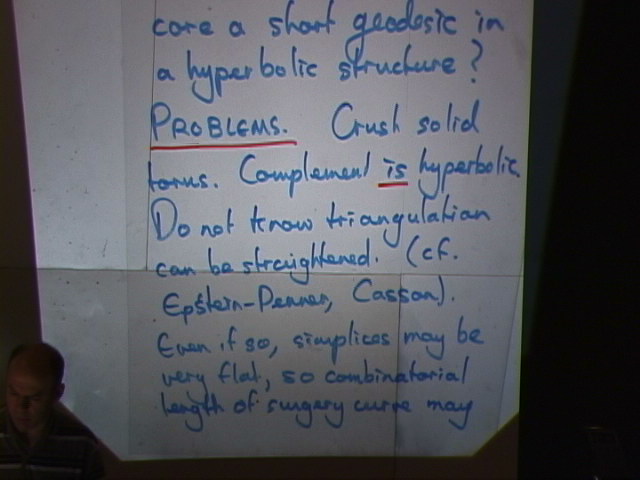 core a short geodesic in
a hyperbolic structure?
PROBLEMS. Crush solid
torus. Complement is hyperbolic.
Do not know triangulation
can be straightened. (cf.
Epstein-Penner, Casson).
Even if so, simplices may be
very flat, so combinatorial
length of surgery curve may